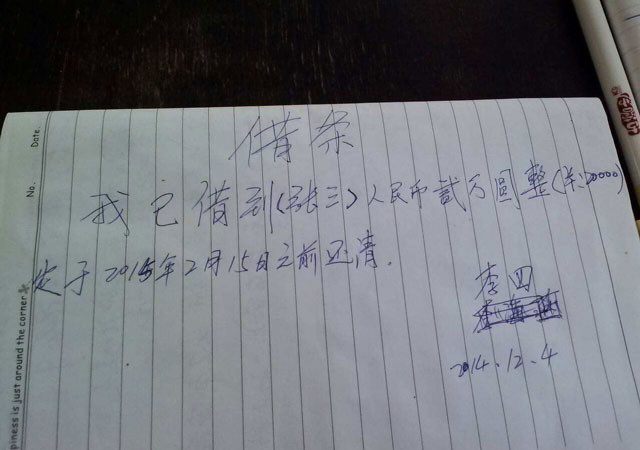 借条
我已借到(张三)人民币贰万圆整(¥:20000)
定于2015年2月15日之前还清.
李四
2014.12.4
No.
Date.
piness is just around the corner